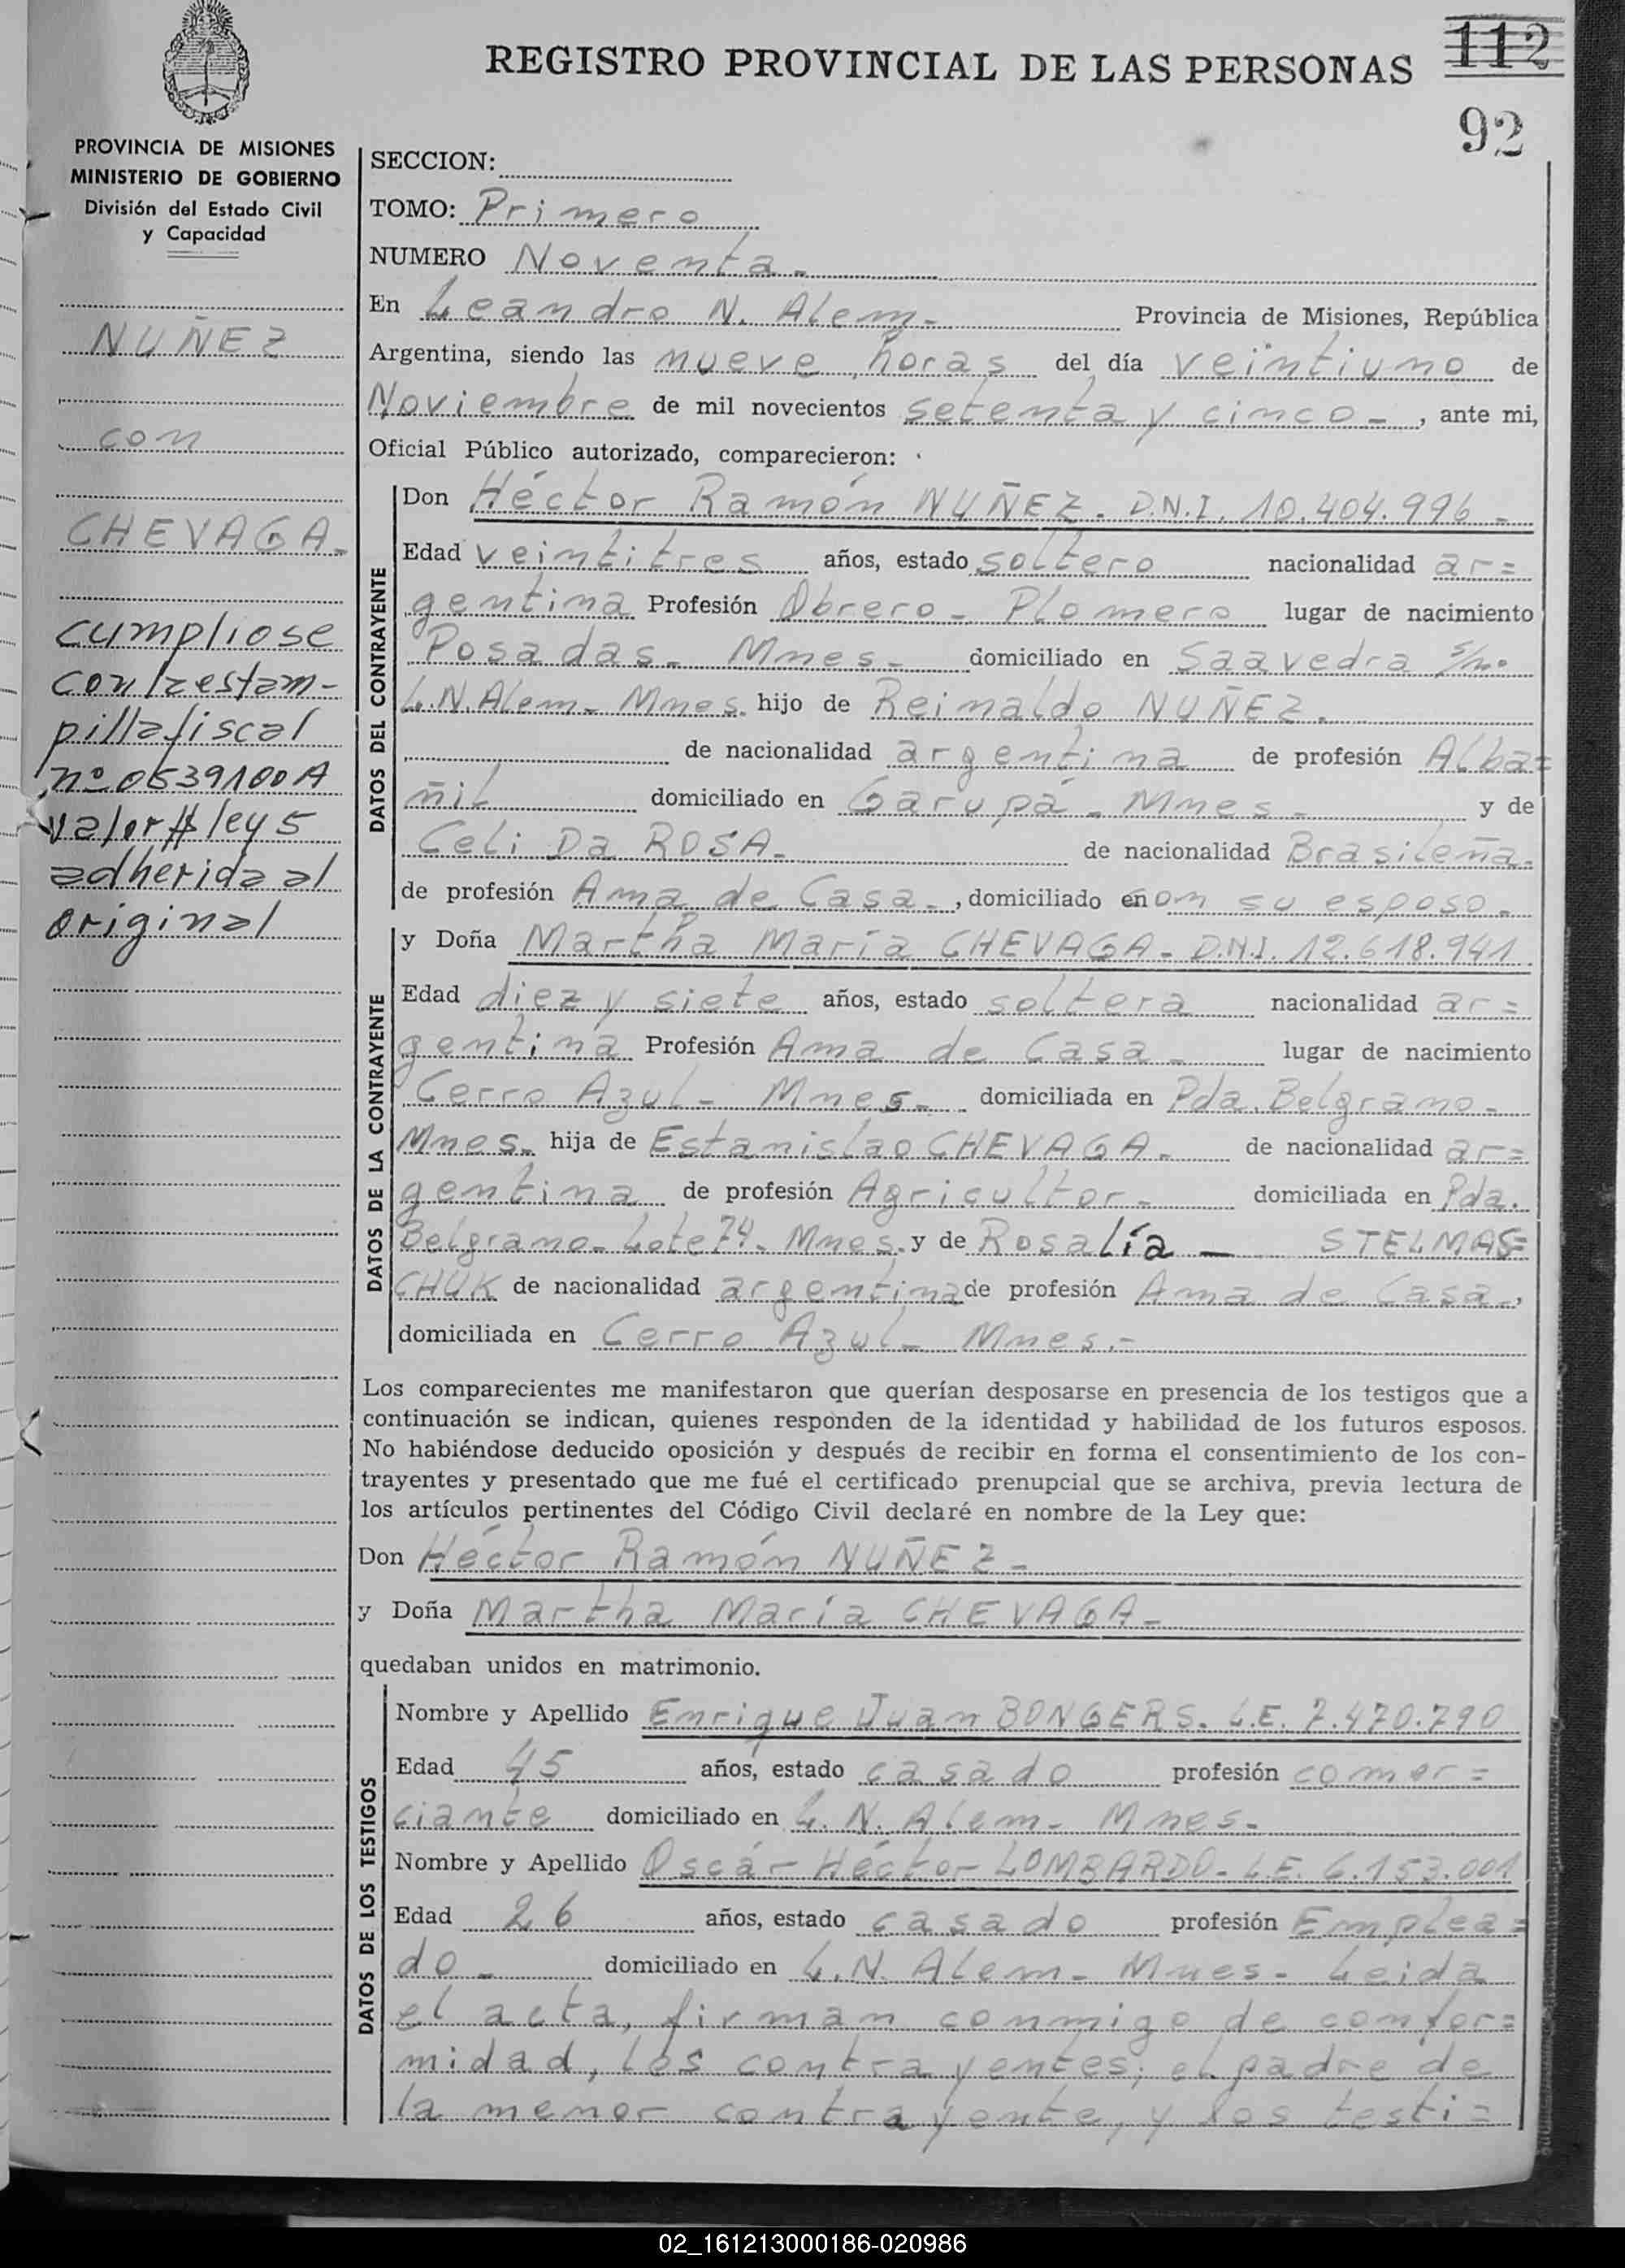 REGISTRO PROVINCIAL DE LAS PERSONAS
112
92
PROVINCIA DE MISIONES
MINISTERIO DE GOBIERNO
División del Estado Civil
y Capacidad
NUÑEZ
con
CHEVAGA.
cumpliose
con la estam-
pilla fiscal
nº 0539100A
valor $ ley 5
adherida al
original
SECCION:
TOMO: Primero
NUMERO Noventa.
En Leandro N. Alem.- Provincia de Misiones, República
Argentina, siendo las nueve horas del día veintiuno de
Noviembre de mil novecientos setenta y cinco-, ante mi,
Oficial Público autorizado, comparecieron:
DATOS DEL CONTRAYENTE
Don Héctor Ramón NUÑEZ. D.N.I. 10.404.996-
Edad veintitres años, estado soltero nacionalidad ar=
gentina Profesión Obrero- Plomero lugar de nacimiento
Posadas- Mnes- domiciliado en Saavedra s/nº
L.N.Alem- Mnes. hijo de Reinaldo NUÑEZ.
de nacionalidad argentina de profesión Alba=
ñil domiciliado en Garupá- Mnes- y de
Celi Da ROSA- de nacionalidad Brasileña-
de profesión Ama de Casa-, domiciliado en on su esposo-
DATOS DE LA CONTRAYENTE
y Doña Martha María CHEVAGA- D.N.I. 12.618.941
Edad diez y siete años, estado soltera nacionalidad ar=
gentina Profesión Ama de Casa- lugar de nacimiento
Cerro Azul- Mnes- domiciliada en Pda. Belgrano-
Mnes- hija de Estanislao CHEVAGA- de nacionalidad ar=
gentina de profesión Agricultor- domiciliada en Pda.
Belgrano- Lote 74- Mnes. y de Rosalía — STELMAS=
CHUK de nacionalidad argentina de profesión Ama de Casa-,
domiciliada en Cerro Azul- Mnes.-
Los comparecientes me manifestaron que querían desposarse en presencia de los testigos que a
continuación se indican, quienes responden de la identidad y habilidad de los futuros esposos.
No habiéndose deducido oposición y después de recibir en forma el consentimiento de los con-
trayentes y presentado que me fué el certificado prenupcial que se archiva, previa lectura de
los artículos pertinentes del Código Civil declaré en nombre de la Ley que:
Don Héctor Ramón NUÑEZ-
y Doña Martha María CHEVAGA-
quedaban unidos en matrimonio.
DATOS DE LOS TESTIGOS
Nombre y Apellido Enrique Juan BONGERS. L.E. 7.470.790
Edad 45 años, estado casado profesión comer=
ciante domiciliado en L.N. Alem- Mnes-
Nombre y Apellido Oscár Héctor LOMBARDO- L.E. 6.153.001
Edad 26 años, estado casado profesión Emplea=
do- domiciliado en L.N. Alem- Mnes- Leida
el acta, firman conmigo de confor=
midad, los contrayentes; el padre de
la menor contrayente, y los testi=
02_161213000186-020986